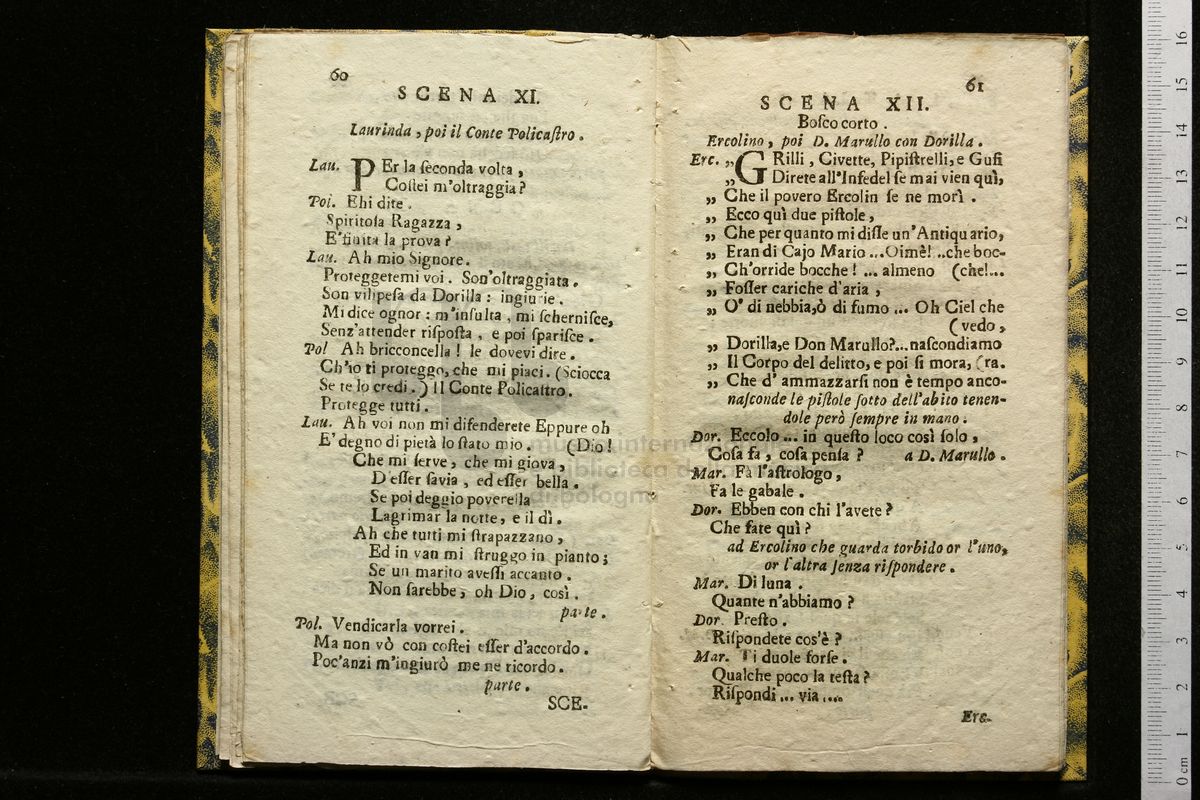 60
SCENA XI.
Laurinda, poi il Conte Policaſtro.
Lau. PEr la ſeconda volta,
Coſtei m'oltraggia?
Pol. Ehi dite.
Spiritoſa Ragazza,
E' finita la prova?
Lau. Ah mio Signore.
Proteggetemi voi. Son'oltraggiata.
Son vilipeſa da Dorilla: ingiurie.
Mi dice ognor: m'inſulta, mi ſcherniſce,
Senz'attender riſpoſta, e poi ſpariſce.
Pol Ah bricconcella! le dovevi dire.
Ch'io ti proteggo, che mi piaci. (Sciocca
Se te lo credi.) Il Conte Policaſtro.
Protegge tutti.
Lau. Ah voi non mi difenderete Eppure oh
E' degno di pietà lo ſtato mio. (Dio!
Che mi ſerve, che mi giova,
D'eſſer ſavia, ed eſſer bella.
Se poi deggio poverella
Lagrimar la notte, e il dì.
Ah che tutti mi ſtrapazzano,
Ed in van mi ſtruggo in pianto;
Se un marito aveſſi accanto.
Non ſarebbe, oh Dio, così.
parte.
Pol. Vendicarla vorrei.
Ma non vò con coſtei eſſer d'accordo.
Poc'anzi m'ingiurò me ne ricordo.
parte.
SCE-
61
SCENA XII.
Boſco corto.
Ercolino, poi D. Marullo con Dorilla.
Erc. „GRilli, Civette, Pipiſtrelli, e Gufi
„ Direte all'Infedel ſe mai vien quì,
„ Che il povero Ercolin ſe ne morì.
„ Ecco quì due piſtole,
„ Che per quanto mi diſſe un'Antiquario,
„ Eran di Cajo Mario ... Oimè! ..che boc-
„ Ch'orride bocche! ... almeno (che!...
„ Foſſer cariche d'aria,
„ O' di nebbia, ò di fumo ... Oh Ciel che
(vedo,
„ Dorilla, e Don Marullo?...naſcondiamo
„ Il Corpo del delitto, e poi ſi mora, (ra.
„ Che d'ammazzarſi non è tempo anco-
naſconde le piſtole ſotto dell'abito tenen-
dole però ſempre in mano.
Dor. Eccolo ... in queſto loco così ſolo,
Coſa fa, coſa penſa? a D. Marullo.
Mar. Fà l'aſtrologo,
Fa le gabale.
Dor. Ebben con chi l'avete?
Che fate quì?
ad Ercolino che guarda torbido or l'uno,
or l'altra ſenza riſpondere.
Mar. Di luna.
Quante n'abbiamo?
Dor. Preſto.
Riſpondete cos'è?
Mar. Ti duole forſe.
Qualche poco la teſta?
Riſpondi ... via ....
Erc.